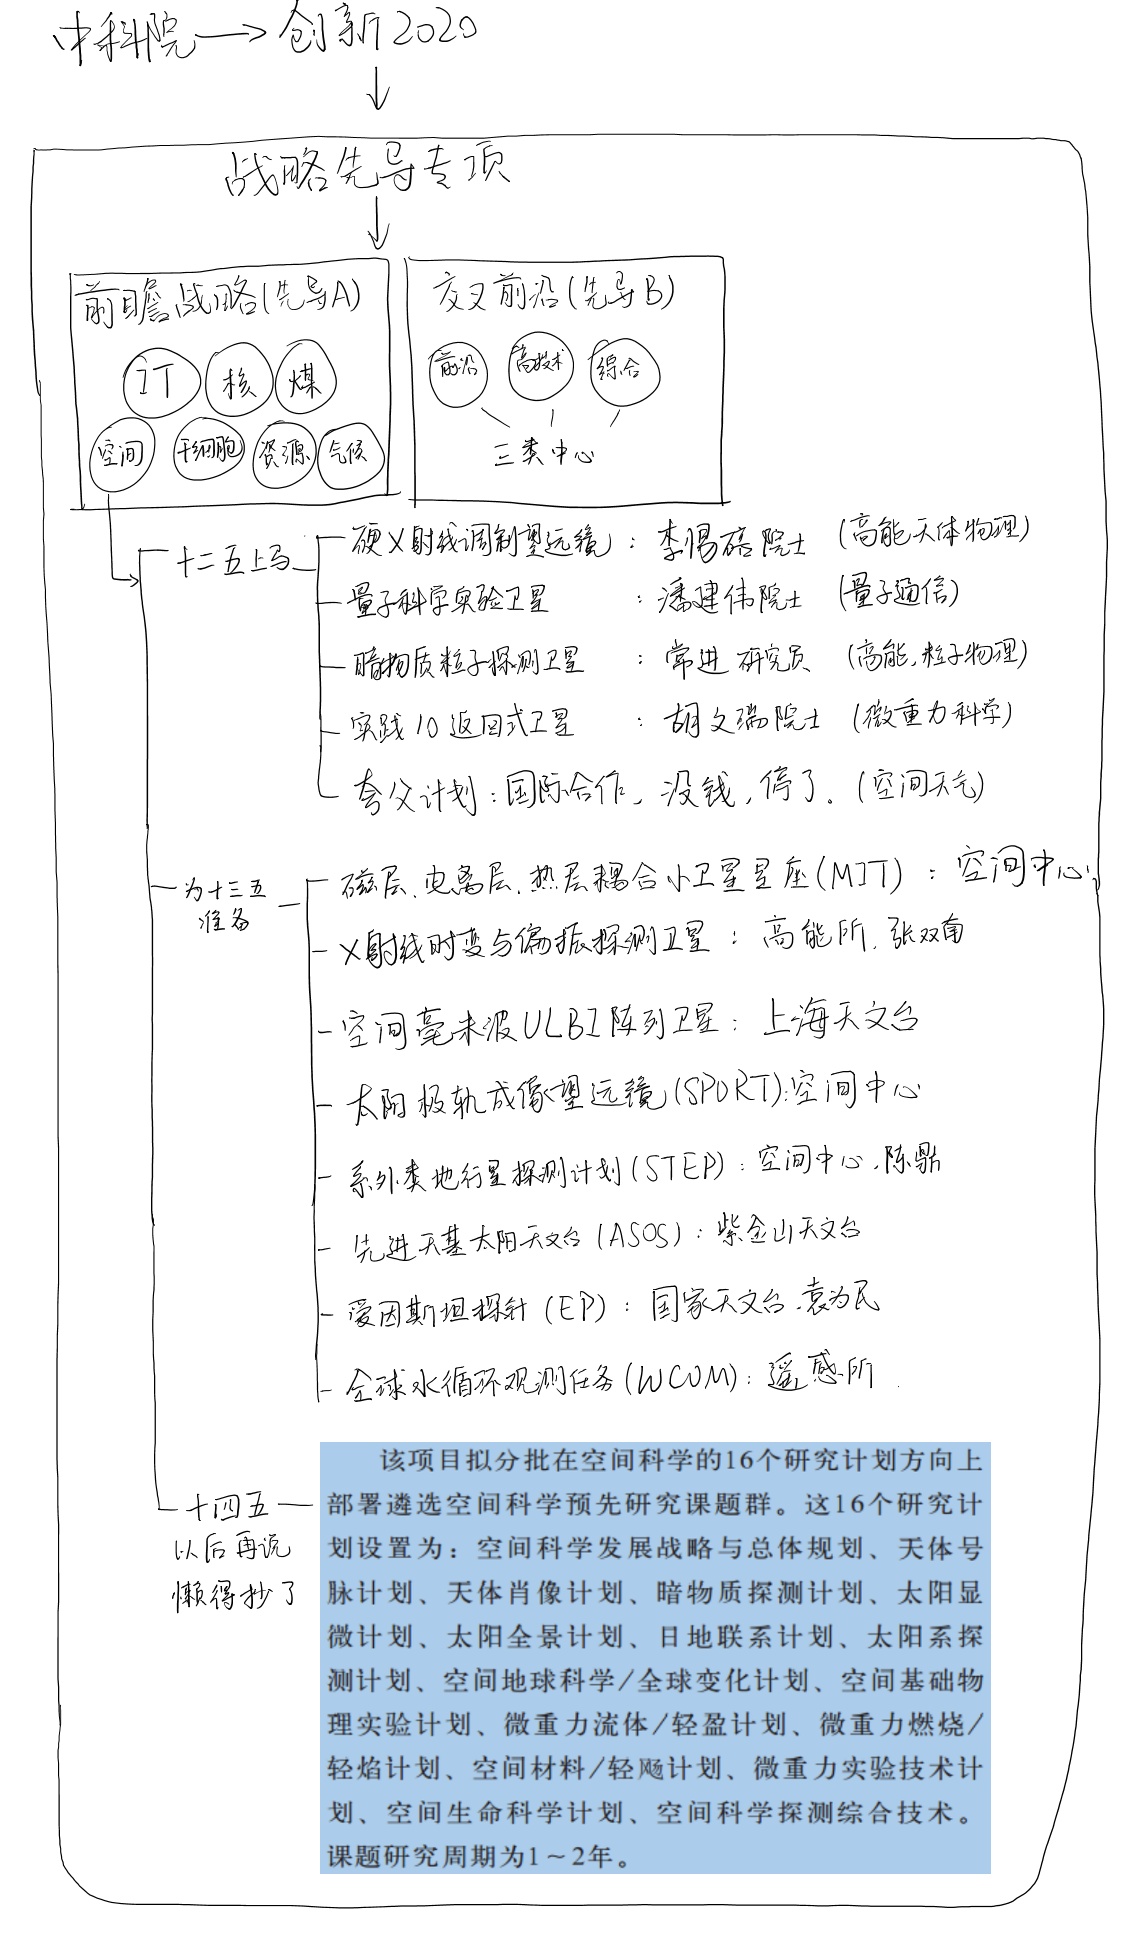 中科院→创新2020
战略先导专项
前瞻战略(先导A)
IT 核 煤
空间 干细胞 资源 气候
交叉前沿(先导B)
前沿 高技术 综合
三类中心
十二五上马
硬X射线调制望远镜：李惕碚院士 (高能天体物理)
量子科学实验卫星：潘建伟院士 (量子通信)
暗物质粒子探测卫星：常进研究员 (高能,粒子物理)
实践10返回式卫星：胡文瑞院士 (微重力科学)
夸父计划：国际合作，没钱，停了。(空间天气)
为十三五
准备
磁层、电离层、热层耦合小卫星星座(MIT)：空间中心、
X射线时变与偏振探测卫星：高能所、张双南
空间毫米波ULBI阵列卫星：上海天文台
太阳极轨成像望远镜(SPORT)：空间中心
系外类地行星探测计划(STEP)：空间中心、陈鼎
先进天基太阳天文台(ASOS)：紫金山天文台
爱因斯坦探针(EP)：国家天文台、袁为民
全球水循环观测任务(WCOM)：遥感所.
十四五
以后再说
懒得抄了
该项目拟分批在空间科学的16个研究计划方向上
部署遴选空间科学预先研究课题群。这16个研究计
划设置为：空间科学发展战略与总体规划、天体号
脉计划、天体肖像计划、暗物质探测计划、太阳显
微计划、太阳全景计划、日地联系计划、太阳系探
测计划、空间地球科学/全球变化计划、空间基础物
理实验计划、微重力流体/轻盈计划、微重力燃烧/
轻焰计划、空间材料/轻飏计划、微重力实验技术计
划、空间生命科学计划、空间科学探测综合技术。
课题研究周期为1～2年。